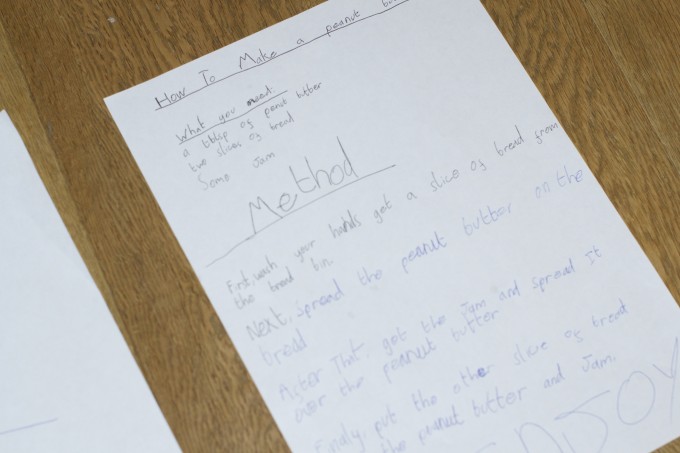 How To Make a peanut bu
What you need:
a tblsp of penut butter
two slices of bread
Some Jam
Method
First, wash your hands get a slice of bread from
the bread bin.
Next, spread the peanut butter on the
bread
After That, get the Jam and spread It
over the peanut butter
Finaly, put the other slice of bread
the peanut butter and Jam.
ENJOY